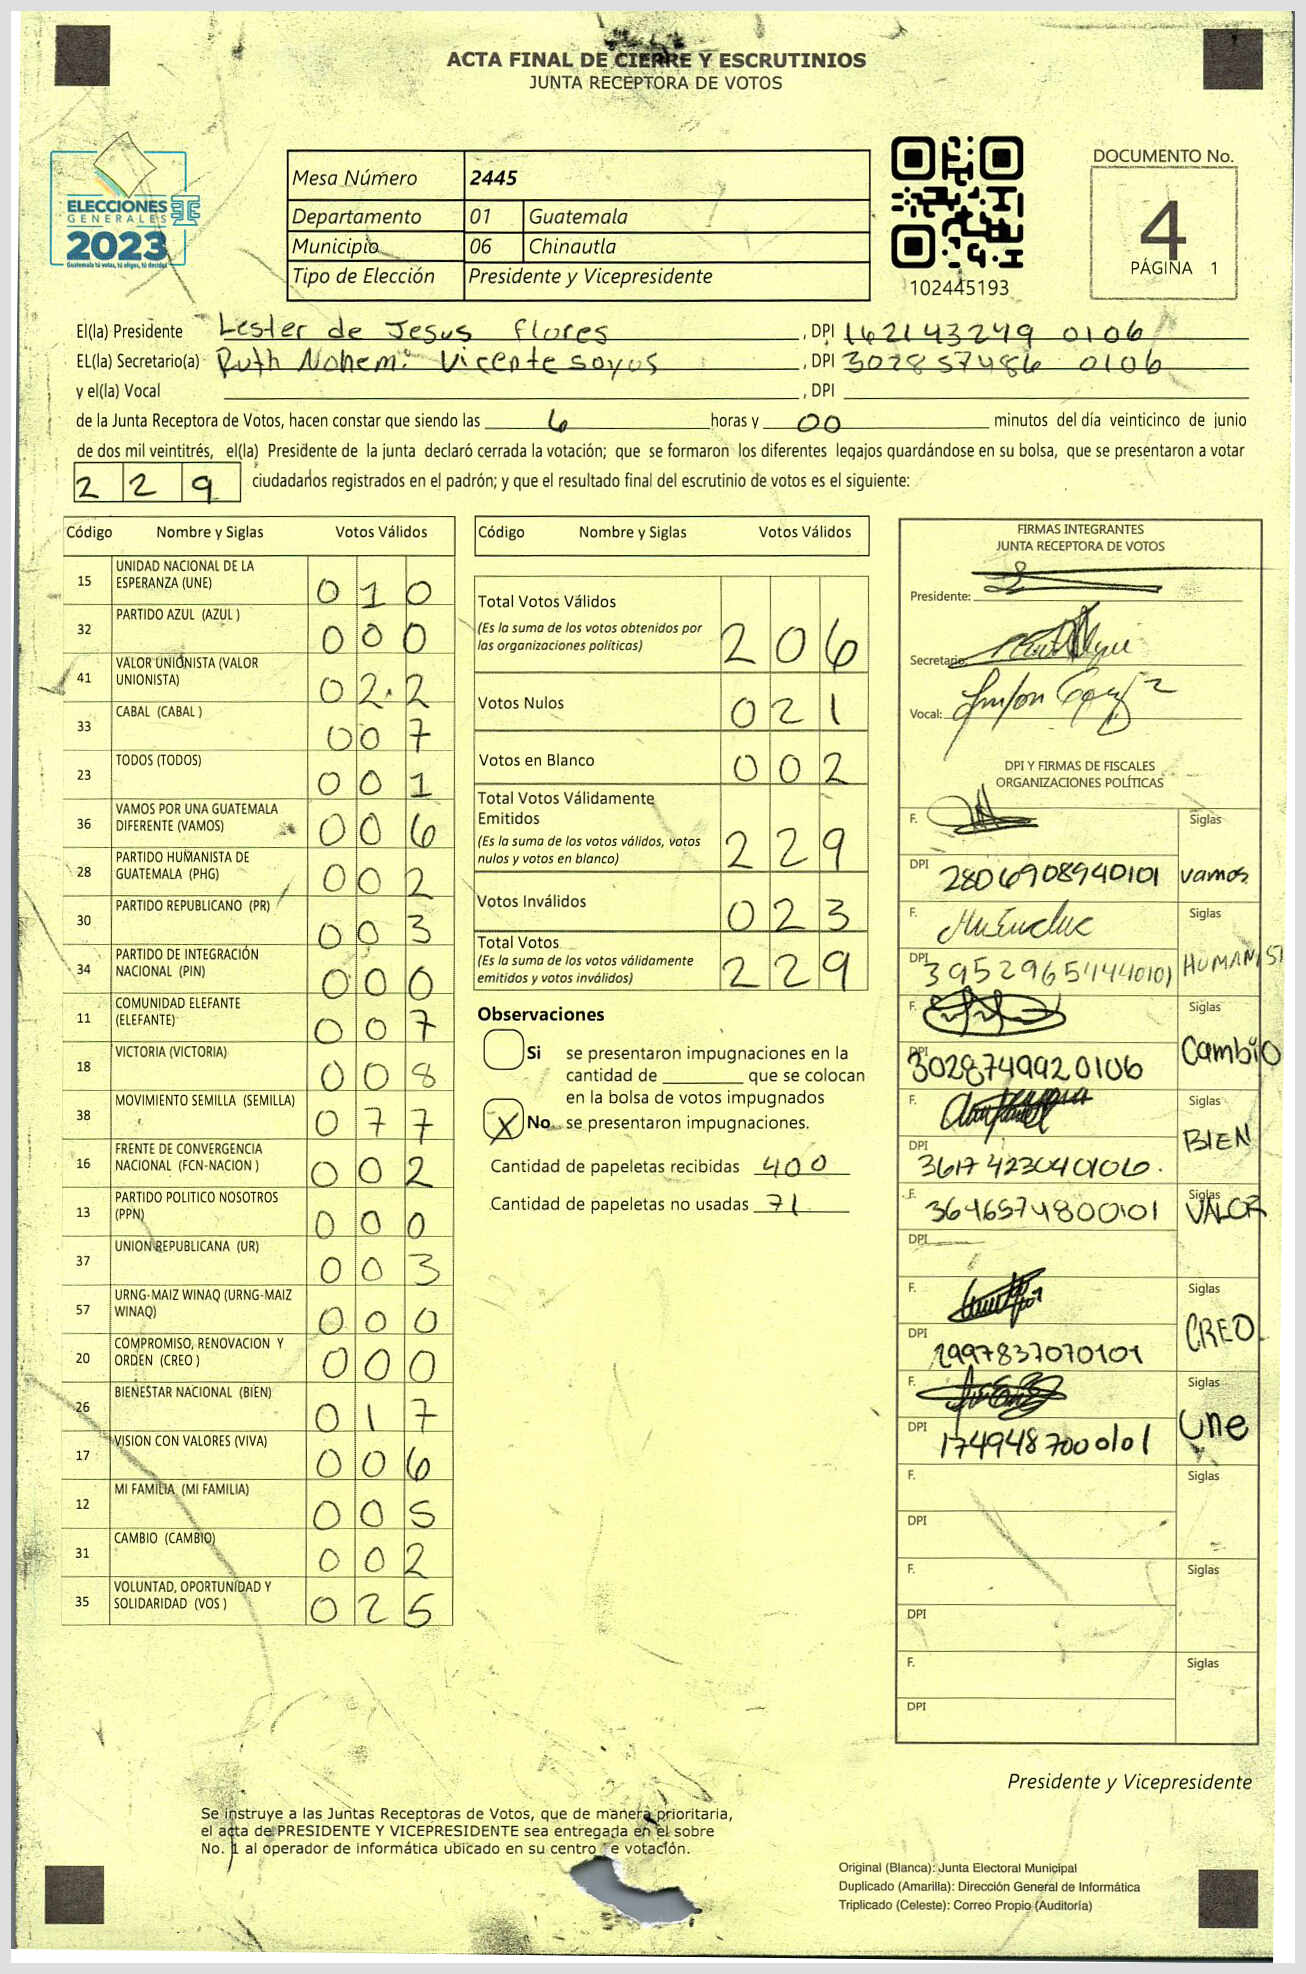 ACTA FINAL DE CIERRE Y ESCRUTINIOS
JUNTA RECEPTORA DE VOTOS
ELECCIONES
GENERALES
2023
Guatemala tú votas, tú eliges, tú decides
Mesa Número 2445
Departamento 01 Guatemala
Municipio 06 Chinautla
Tipo de Elección Presidente y Vicepresidente
102445193
DOCUMENTO No.
4
PÁGINA 1
El(la) Presidente Lester de Jesus flores, DPI 162143249 0106
EL(la) Secretario(a) Ruth Nohemi Vicente soyos, DPI 302857486 0106
y el(la) Vocal , DPI
de la Junta Receptora de Votos, hacen constar que siendo las 6 horas y 00 minutos del día veinticinco de junio
de dos mil veintitrés, el(la) Presidente de la junta declaró cerrada la votación; que se formaron los diferentes legajos guardándose en su bolsa, que se presentaron a votar
229 ciudadanos registrados en el padrón; y que el resultado final del escrutinio de votos es el siguiente:
Código Nombre y Siglas Votos Válidos
15 UNIDAD NACIONAL DE LA ESPERANZA (UNE) 010
32 PARTIDO AZUL (AZUL ) 000
41 VALOR UNIONISTA (VALOR UNIONISTA) 02.2
33 CABAL (CABAL ) 007
23 TODOS (TODOS) 001
36 VAMOS POR UNA GUATEMALA DIFERENTE (VAMOS) 006
28 PARTIDO HUMANISTA DE GUATEMALA (PHG) 002
30 PARTIDO REPUBLICANO (PR) 003
34 PARTIDO DE INTEGRACIÓN NACIONAL (PIN) 000
11 COMUNIDAD ELEFANTE (ELEFANTE) 007
18 VICTORIA (VICTORIA) 008
38 MOVIMIENTO SEMILLA (SEMILLA) 077
16 FRENTE DE CONVERGENCIA NACIONAL (FCN-NACION ) 002
13 PARTIDO POLITICO NOSOTROS (PPN) 000
37 UNION REPUBLICANA (UR) 003
57 URNG-MAIZ WINAQ (URNG-MAIZ WINAQ) 000
20 COMPROMISO, RENOVACION Y ORDEN (CREO ) 000
26 BIENESTAR NACIONAL (BIEN) 017
17 VISION CON VALORES (VIVA) 006
12 MI FAMILIA (MI FAMILIA) 005
31 CAMBIO (CAMBIO) 002
35 VOLUNTAD, OPORTUNIDAD Y SOLIDARIDAD (VOS ) 025
Código Nombre y Siglas Votos Válidos
Total Votos Válidos 206
(Es la suma de los votos obtenidos por
las organizaciones políticas)
Votos Nulos 021
Votos en Blanco 002
Total Votos Válidamente
Emitidos 229
(Es la suma de los votos válidos, votos
nulos y votos en blanco)
Votos Inválidos 023
Total Votos 229
(Es la suma de los votos válidamente
emitidos y votos inválidos)
Observaciones
Si se presentaron impugnaciones en la
cantidad de ________ que se colocan
en la bolsa de votos impugnados
X No se presentaron impugnaciones.
Cantidad de papeletas recibidas 400
Cantidad de papeletas no usadas 71
FIRMAS INTEGRANTES
JUNTA RECEPTORA DE VOTOS
Presidente:
Secretario:
Vocal:
DPI Y FIRMAS DE FISCALES
ORGANIZACIONES POLÍTICAS
F. Siglas
DPI 2806908940101 vamos
F. Siglas
DPI HUMANIST
F. Siglas
DPI 3028749920106 Cambio
F. Siglas
DPI 3617423040106. BIEN
F. 3646574800101 Siglas VALOR
DPI
F. Siglas
DPI 2997837070101 CREO.
F. Siglas
DPI 1749487000101 une
F. Siglas
DPI
F. Siglas
DPI
F. Siglas
DPI
Presidente y Vicepresidente
Se instruye a las Juntas Receptoras de Votos, que de manera prioritaria,
el acta de PRESIDENTE Y VICEPRESIDENTE sea entregada en el sobre
No. 1 al operador de informática ubicado en su centro e votación.
Original (Blanca): Junta Electoral Municipal
Duplicado (Amarilla): Dirección General de Informática
Triplicado (Celeste): Correo Propio (Auditoría)